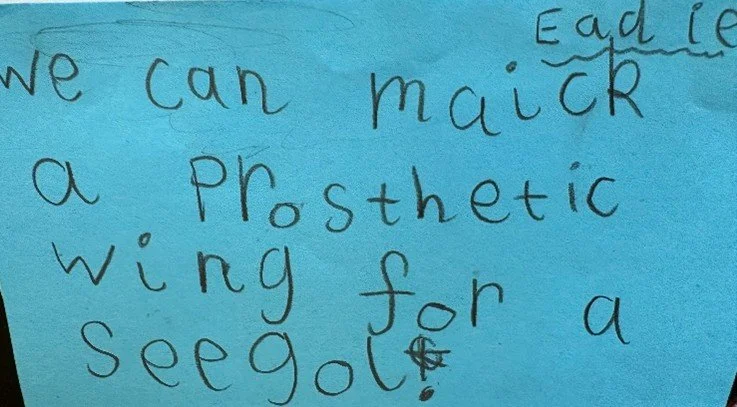 Eadie
we can maick
a Prosthetic
wing for a
seegol!